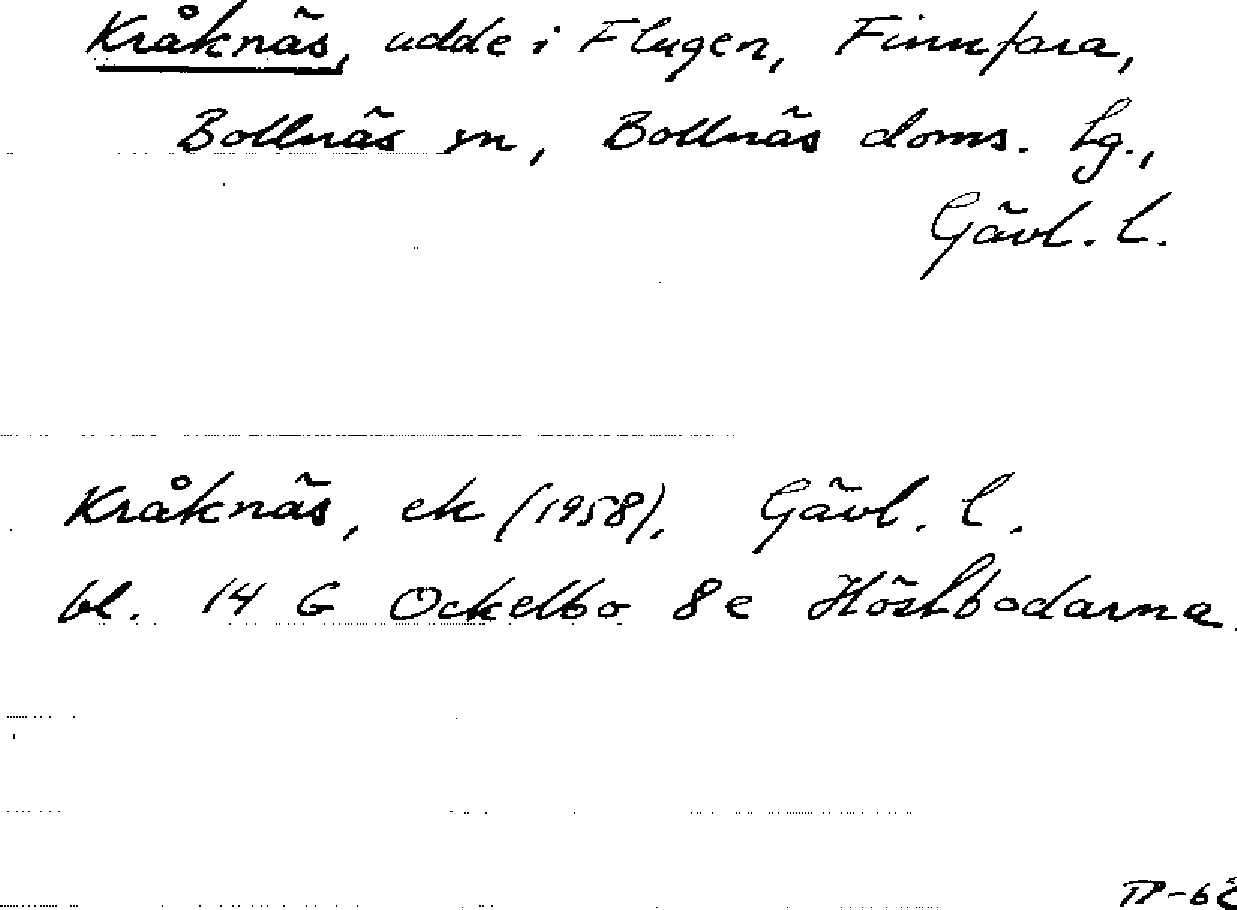 Kråknäs, udde i Flugen, Finnfara,
Bollnäs sn, Bollnäs doms. Lg.,
Gävl. l.
Kråknäs, ek (1958), Gävl. l.
bl. 14 G Ockelbo 8e Höstbodarna